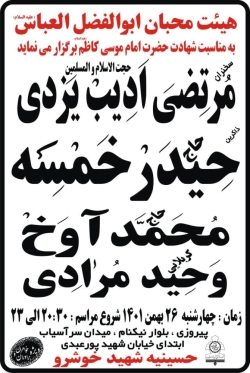 هیئت محبان ابوالفضل العباس (علیه السلام)
به مناسبت شهادت حضرت امام موسی کاظم برگزار می نماید
سخنران
حجت الاسلام و المسلمین
مرتضی ادیب یزدی
ذاکرین
حاج
حیدر خمسه
حاج
محمد آوخ
کربلایی
وحید مرادی
زمان : چهارشنبه ۲۶ بهمن ۱۴۰۱ شروع مراسم : ۲۰:۳۰ الی ۲۳
پیروزی ، بلوار نیکنام ، میدان سرآسیاب
ابتدای خیابان شهید پورعبدی
حسینیه شهید خوشرو